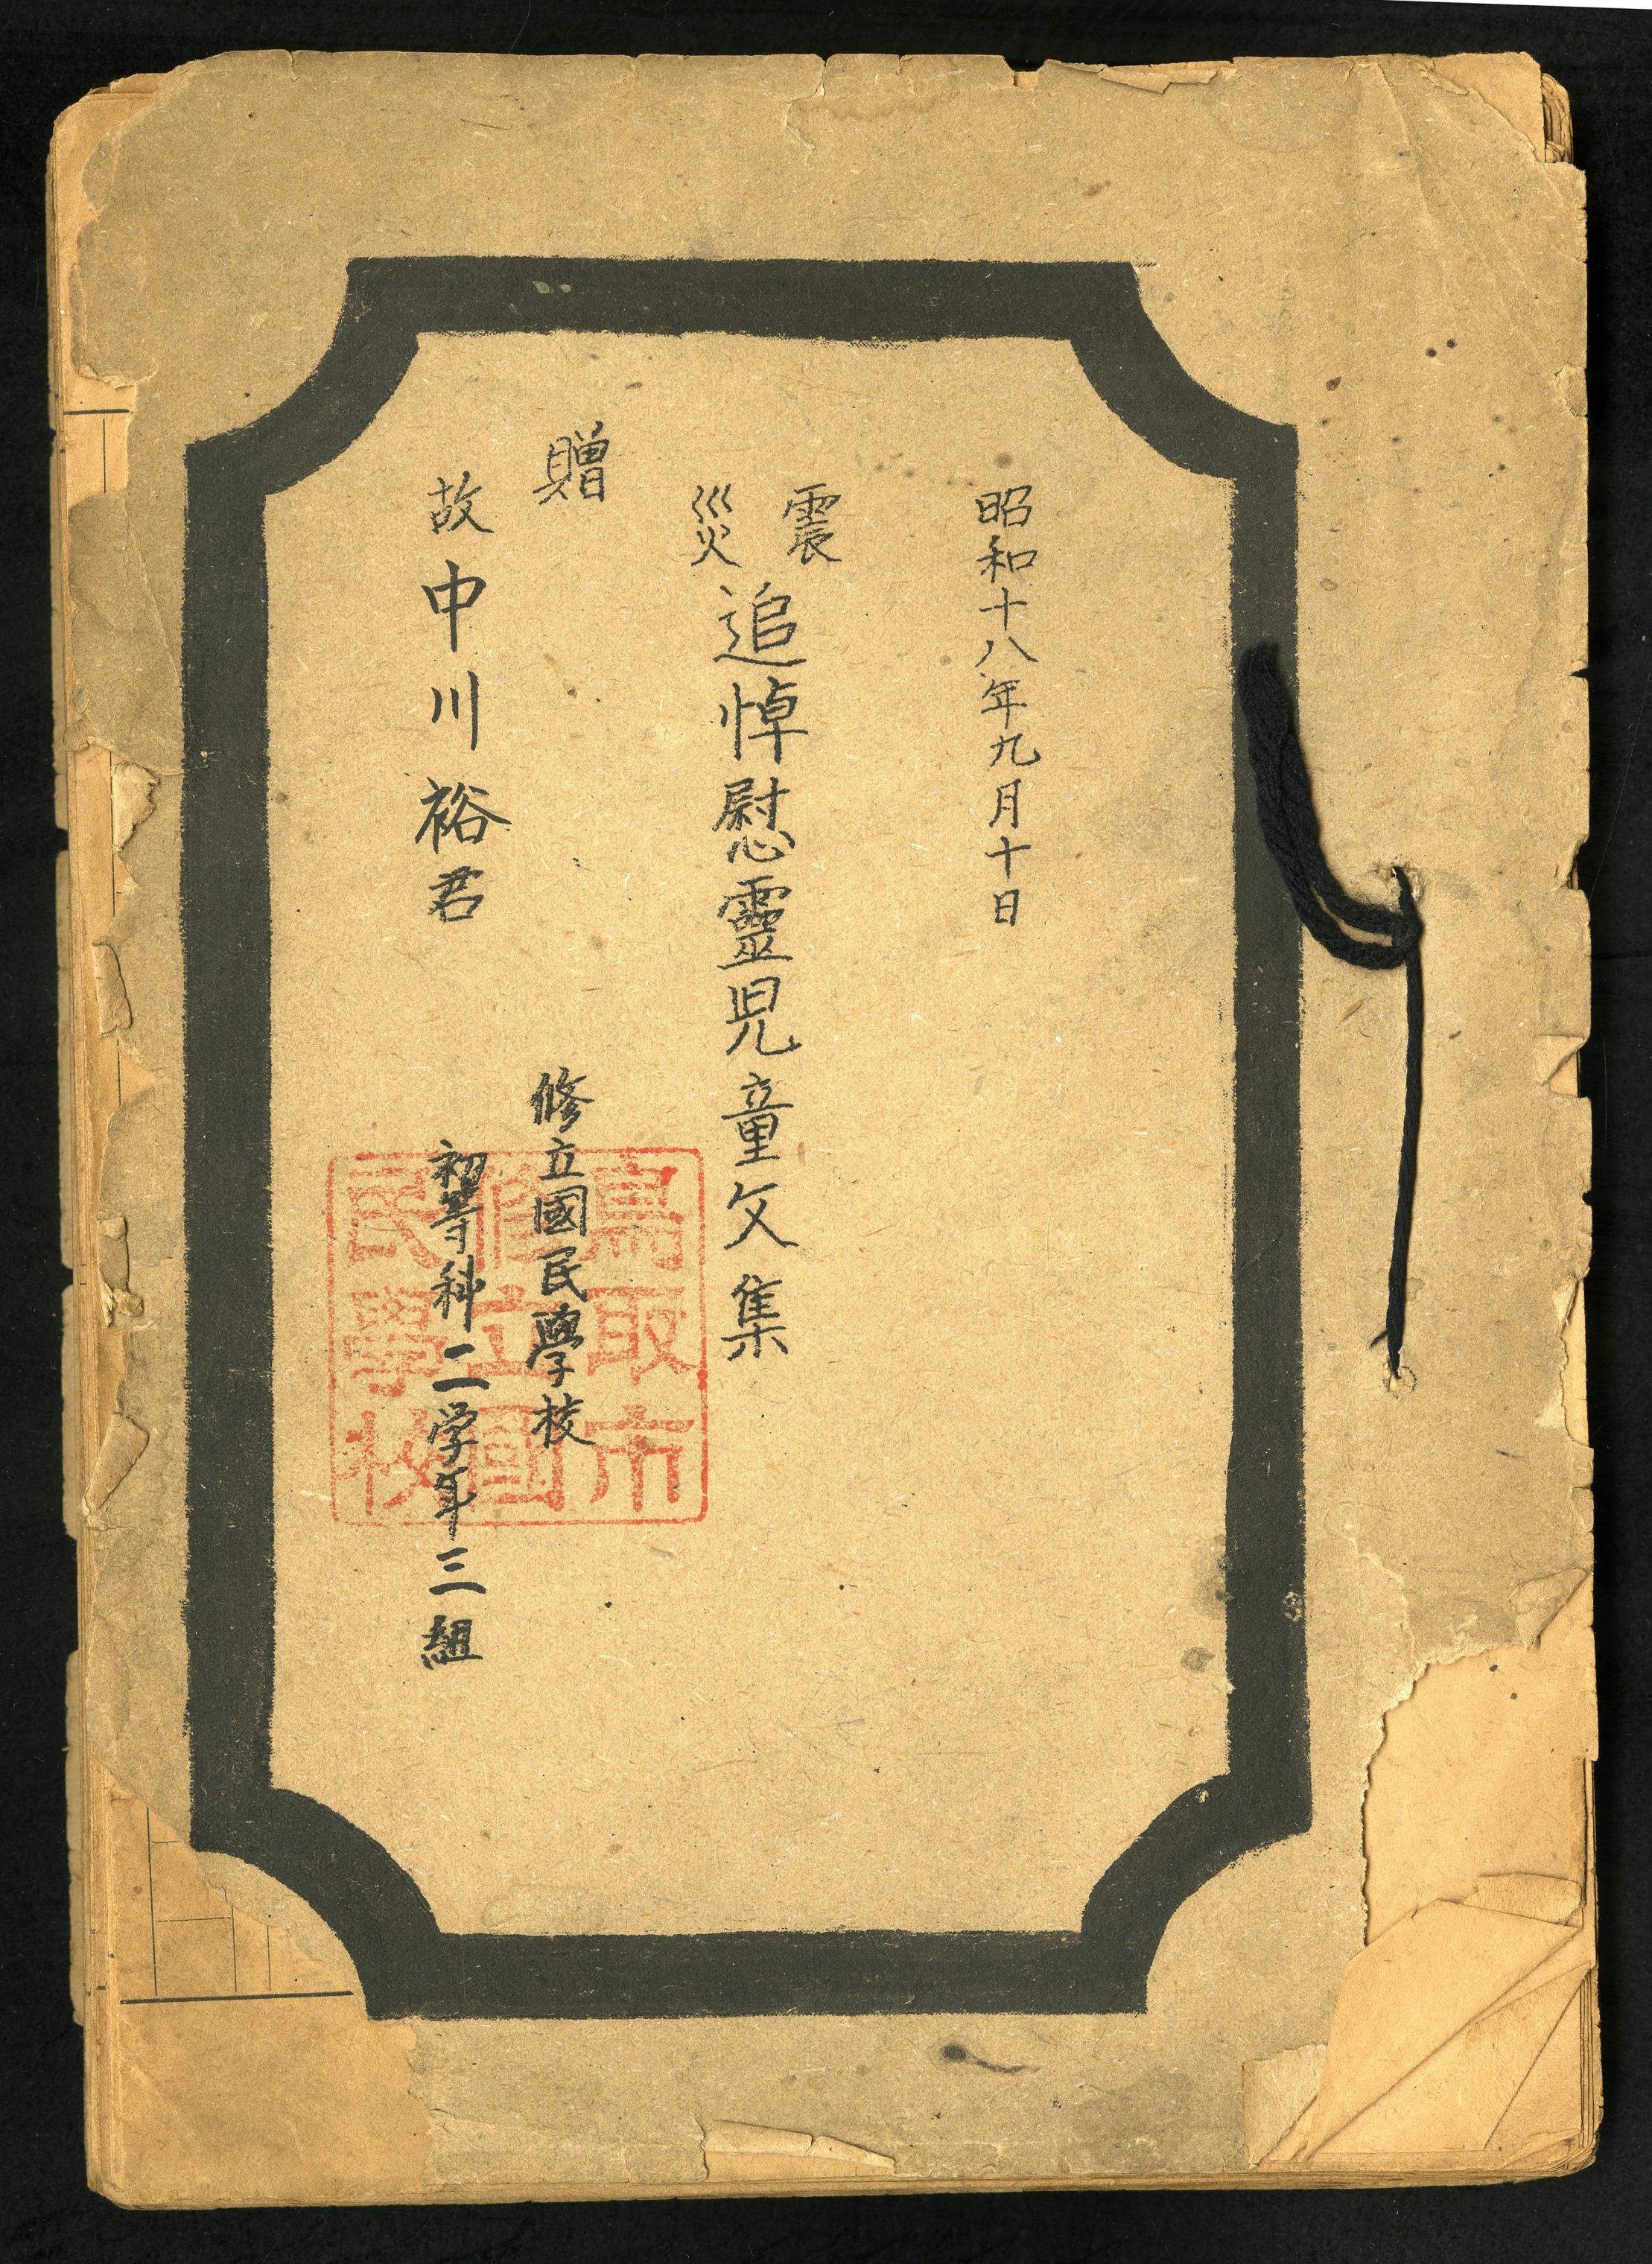 昭和十八年九月十日
震災追悼慰靈児童文集
贈
故中川裕君
修立國民學校
初等科二学年三組
鳥取市
修立國
民學校